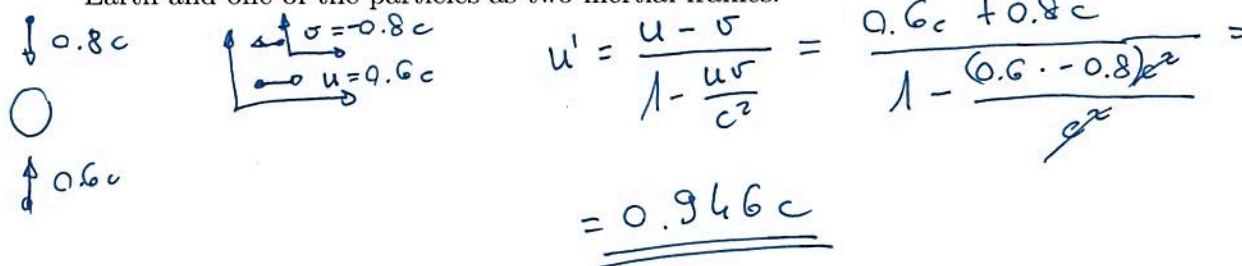 Earth and one of the particles as two inertial frames.
0.8c
v = -0.8c
u = 0.6c
u' = \frac{u - v}{1 - \frac{uv}{c^2}} = \frac{0.6c + 0.8c}{1 - \frac{(0.6 \cdot -0.8)c^2}{c^2}} =
0.6c
= 0.946c